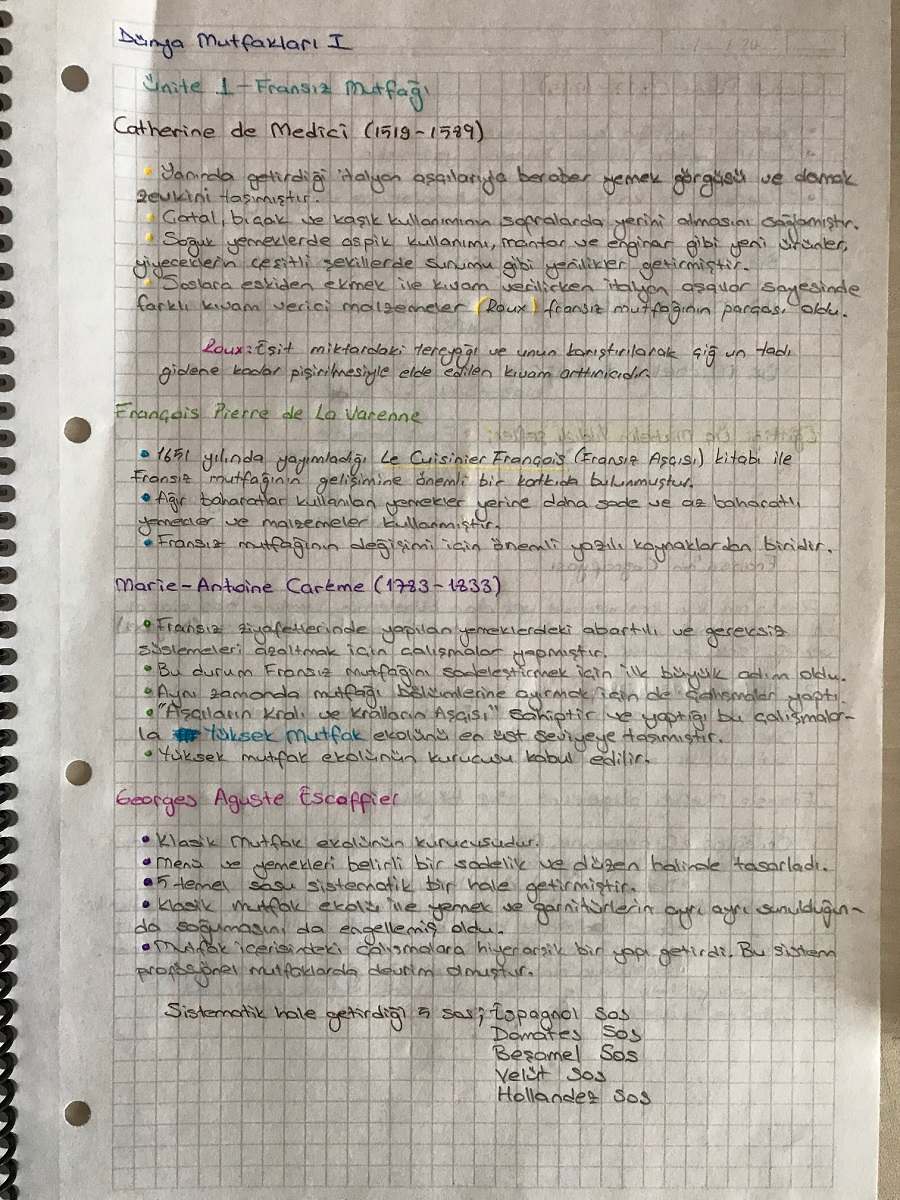 Dünya Mutfakları I
Ünite 1 - Fransız Mutfağı
Catherine de Medici (1519-1589)
• Yanında getirdiği italyan aşçılarıyla beraber yemek görgüsü ve damak
zevkini taşımıştır.
• Çatal, bıçak ve kaşık kullanımının sofralarda yerini almasını sağlamıştır.
• Soğuk yemeklerde aspik kullanımı, mantar ve enginar gibi yeni ürünler,
yiyeceklerin çeşitli şekillerde sunumu gibi yenilikler getirmiştir.
• Soslara eskiden ekmek ile kıvam verilirken italyan aşçılar sayesinde
farklı kıvam verici malzemeler (Roux) fransız mutfağının parçası oldu.
Roux: Eşit miktardaki tereyağı ve unun karıştırılarak çiğ un tadı
gidene kadar pişirilmesiyle elde edilen kıvam arttırıcıdır.
François Pierre de La Varenne
• 1651 yılında yayımladığı Le Cuisinier François (Fransız Aşçısı) kitabı ile
Fransız mutfağının gelişimine önemli bir katkıda bulunmuştur.
• Ağır baharatlar kullanılan yemekler yerine daha sade ve az baharatlı
yemekler ve malzemeler kullanmıştır.
• Fransız mutfağının değişimi için önemli yazılı kaynaklardan biridir.
Marie-Antoine Carême (1783-1833)
• Fransız ziyafetlerinde yapılan yemeklerdeki abartılı ve gereksiz
süslemeleri azaltmak için çalışmalar yapmıştır.
• Bu durum Fransız mutfağını sadeleştirmek için ilk büyük adım oldu.
• Aynı zamanda mutfağı bölümlerine ayırmak için de çalışmalar yaptı.
• "Aşçıların Kralı ve Kralların Aşçısı" sahiptir ve yaptığı bu çalışmalar-
la Yüksek Mutfak ekolünü en üst seviyeye taşımıştır.
• Yüksek mutfak ekolünün kurucusu kabul edilir.
Georges Aguste Escoffier
• Klasik Mutfak ekolünün kurucusudur.
• Menü ve yemekleri belirli bir sadelik ve düzen halinde tasarladı.
• 5 temel sosu sistematik bir hale getirmiştir.
• Klasik mutfak ekolü ile yemek ve garnitürlerin ayrı ayrı sunulduğun-
da soğumasını da engellemiş oldu.
• Mutfak içerisindeki çalışmalara hiyerarşik bir yapı getirdi. Bu sistem
profesyönel mutfaklarda devrim olmuştur.
Sistematik hale getirdiği 5 sos; Espagnol Sos
Domates Sos
Beşamel Sos
Velüt Sos
Hollandez Sos